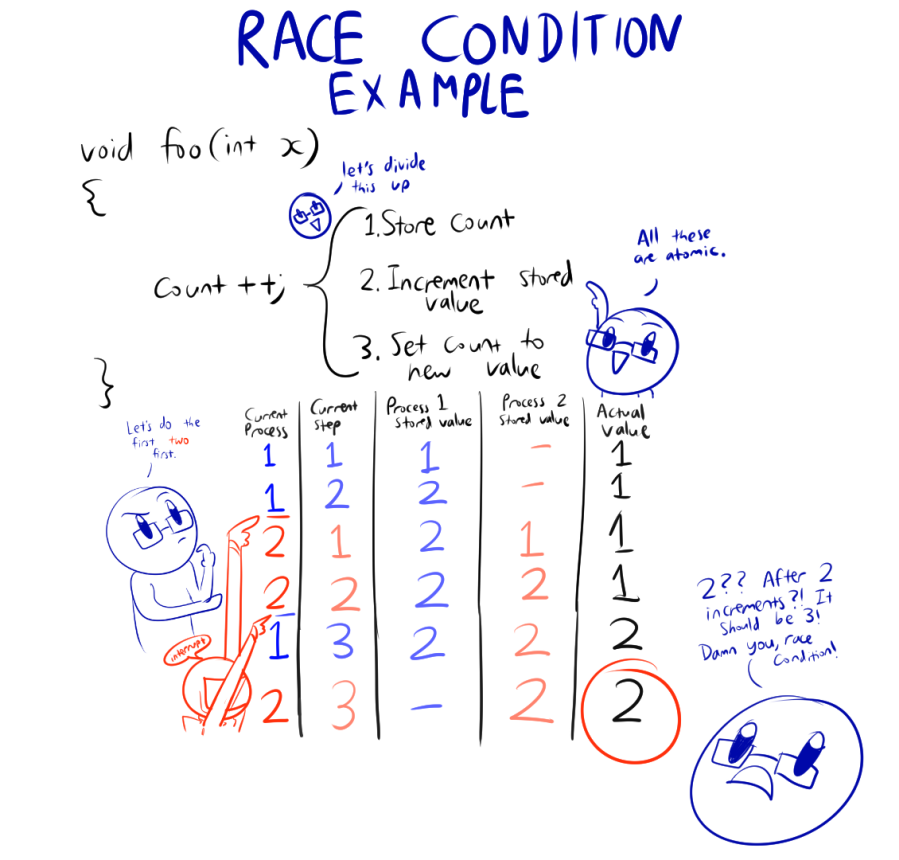 RACE CONDITION
EXAMPLE
void foo(int x)
{
let's divide
this up
count ++;
1. Store count
2. Increment stored
value
3. Set count to
new value
All these
are atomic.
}
Let's do the
first two
first.
Current
Process
Current
Step
Process 1
Stored value
Process 2
Stored value
Actual
value
1 1 1 - 1
1 2 2 - 1
2 1 2 1 1
2 2 2 2 1
1 3 2 2 2
2 3 - 2 2
interrupt
2?? After 2
increments?! It
should be 3!
Damn you, race
condition!